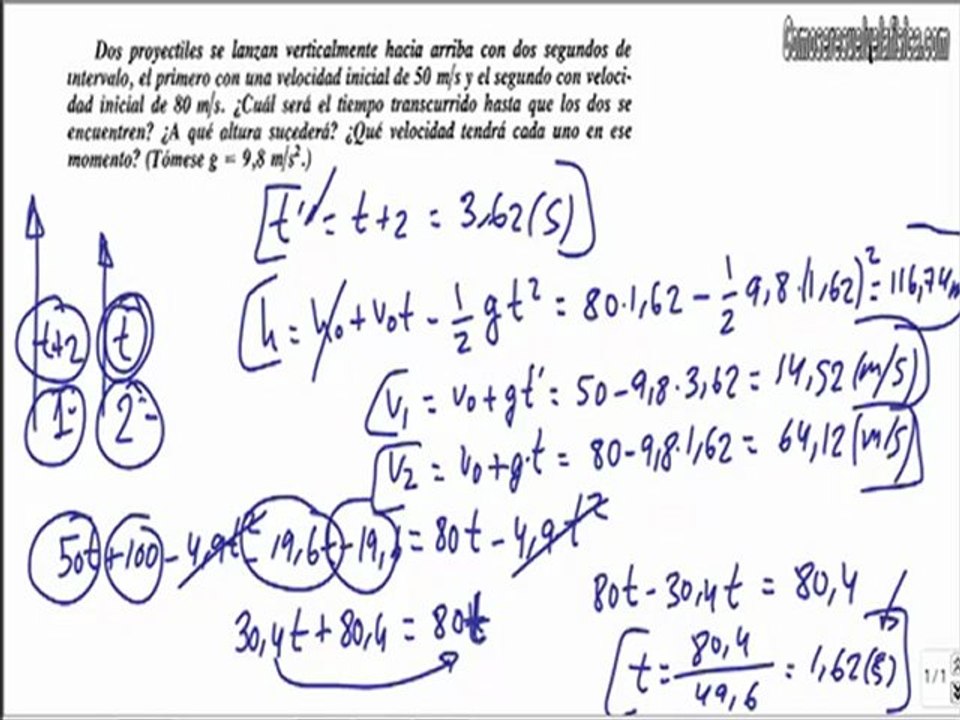 Comoseresuelvelafisica.com
Dos proyectiles se lanzan verticalmente hacia arriba con dos segundos de
intervalo, el primero con una velocidad inicial de 50 m/s y el segundo con veloci-
dad inicial de 80 m/s. ¿Cuál será el tiempo transcurrido hasta que los dos se
encuentren? ¿A qué altura sucederá? ¿Qué velocidad tendrá cada uno en ese
momento? (Tómese g = 9,8 m/s².)
t' = t+2 = 3,62(s)
h = h₀ + v₀t - 1/2 g t² = 80·1,62 - 1/2 9,8·(1,62)² = 116,74m
t+2 t
v₁ = v₀+gt' = 50-9,8·3,62 = 14,52 (m/s)
1º 2º
v₂ = v₀+g·t = 80-9,8·1,62 = 64,12 (m/s)
50t+100-4,9t²-19,6t-19,6 = 80t-4,9t²
80t-30,4t = 80,4
30,4t+80,4 = 80t
t = 80,4/49,6 = 1,62(s)
1/1